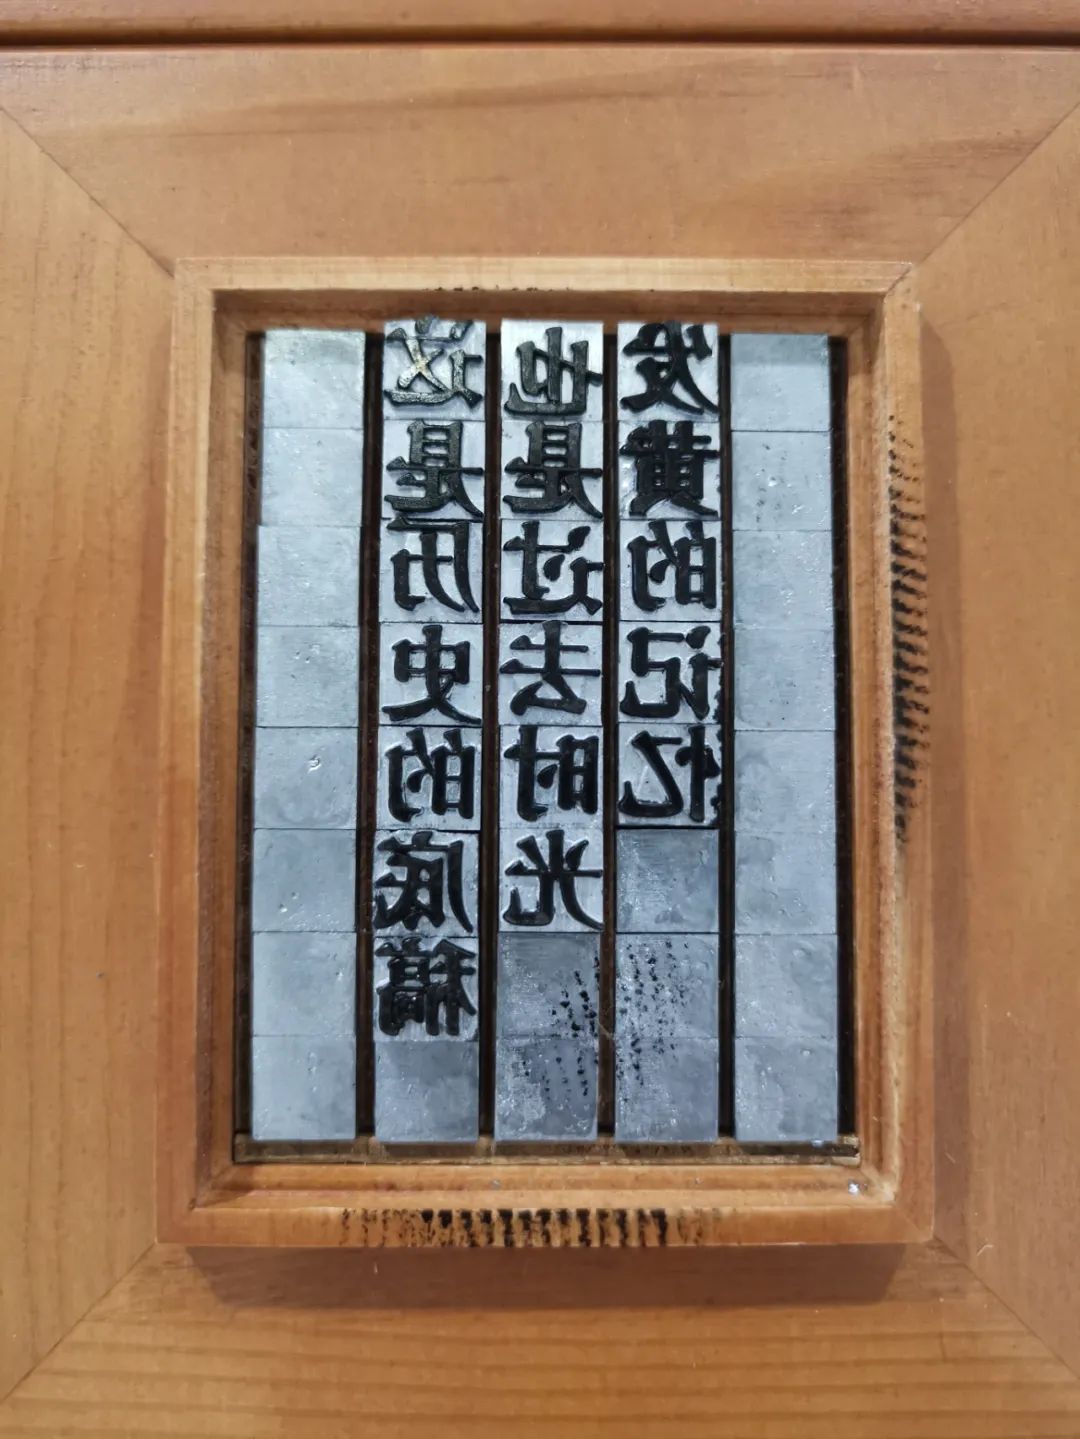 这是历史的底稿
也是过去时光
发黄的记忆